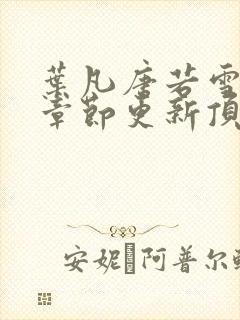 葉凡唐若雪
章節更新頂
安妮�阿普尔